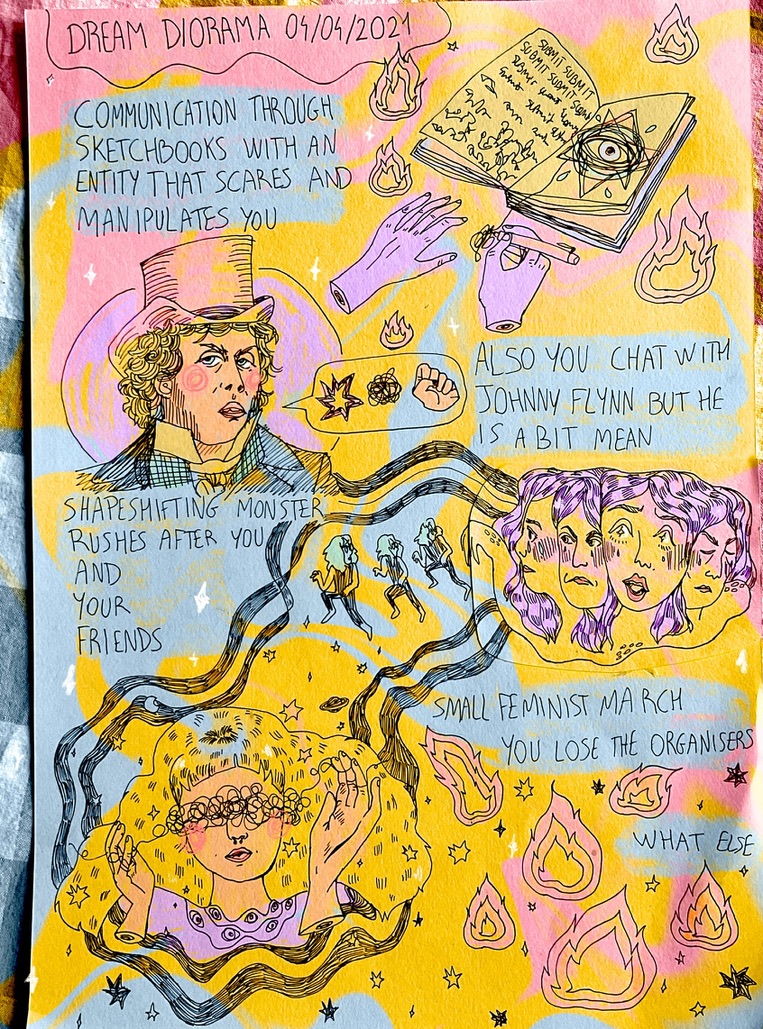 DREAM DIORAMA 04/04/2021
COMMUNICATION THROUGH
SKETCHBOOKS WITH AN
ENTITY THAT SCARES AND
MANIPULATES YOU
SUBMIT SUBMIT
SUBMIT SUBMIT
SUBMIT SUBMIT
ALSO YOU CHAT WITH
JOHNNY FLYNN BUT HE
IS A BIT MEAN
SHAPESHIFTING MONSTER
RUSHES AFTER YOU
AND
YOUR
FRIENDS
SMALL FEMINIST MARCH
YOU LOSE THE ORGANISERS
WHAT ELSE